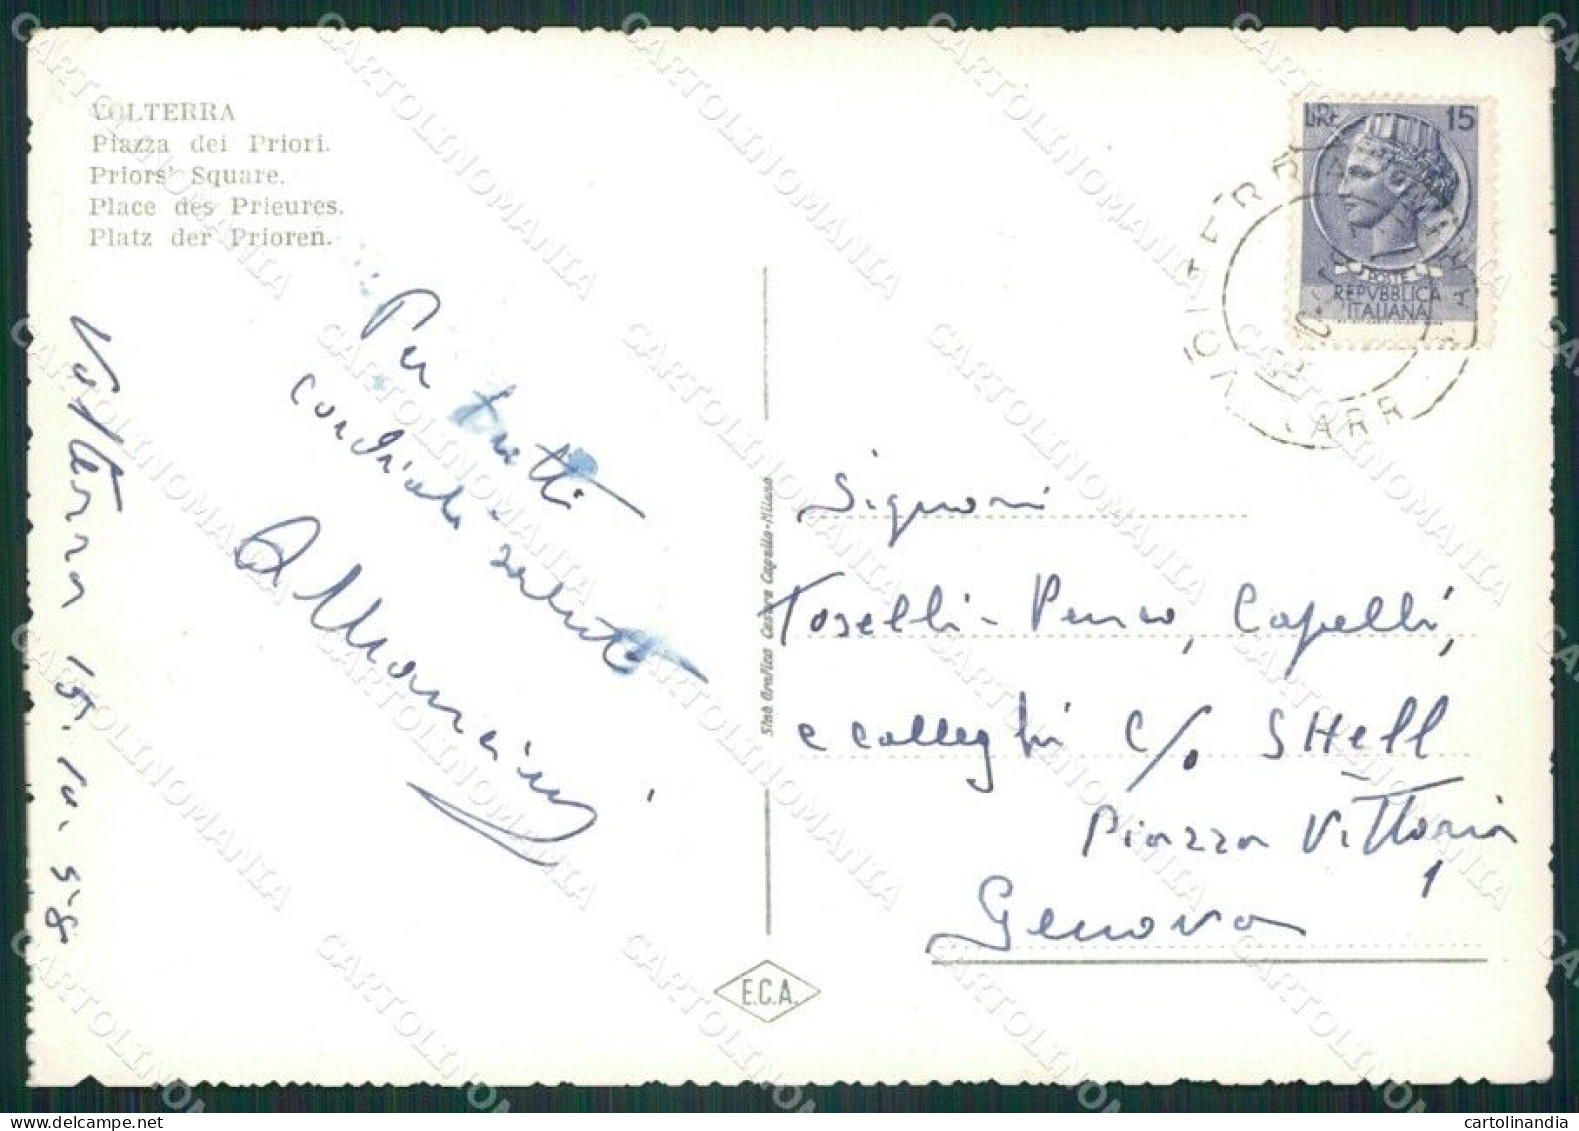 VOLTERRA
Piazza dei Priori.
Priors' Square.
Place des Prieures.
Platz der Prioren.
LIRE 15
POSTE
REPVBBLICA
ITALIANA
Volterra 15.10.58
Per tutti
cordiale saluto
A Mancini
Stab Grafico Cesare Capello-Milano
E.C.A.
Signori
Toselli-Penco, Capelli,
e colleghi c/o SHell
Piazza Vittoria
1
Genova
CARTOLINOMANIA
cartolinandia